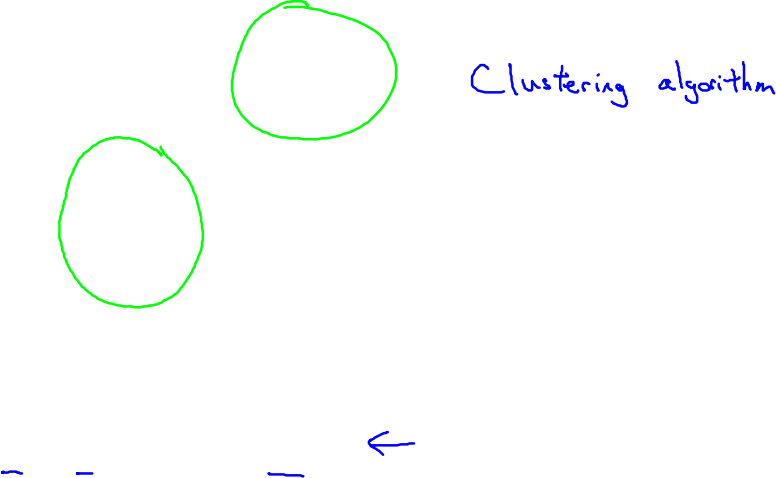 Clustering algorithm